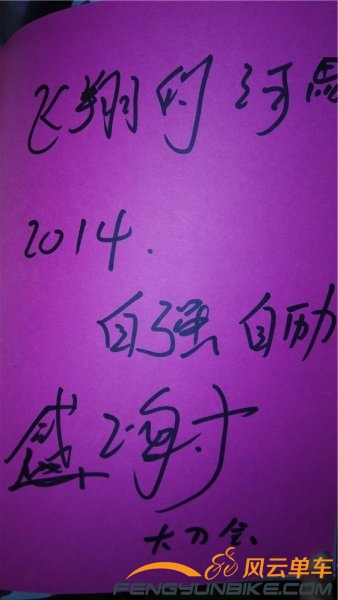 飞翔的河马
2014.
自强自励
感谢
大刀会
风云单车
FENGYUNBIKE.COM